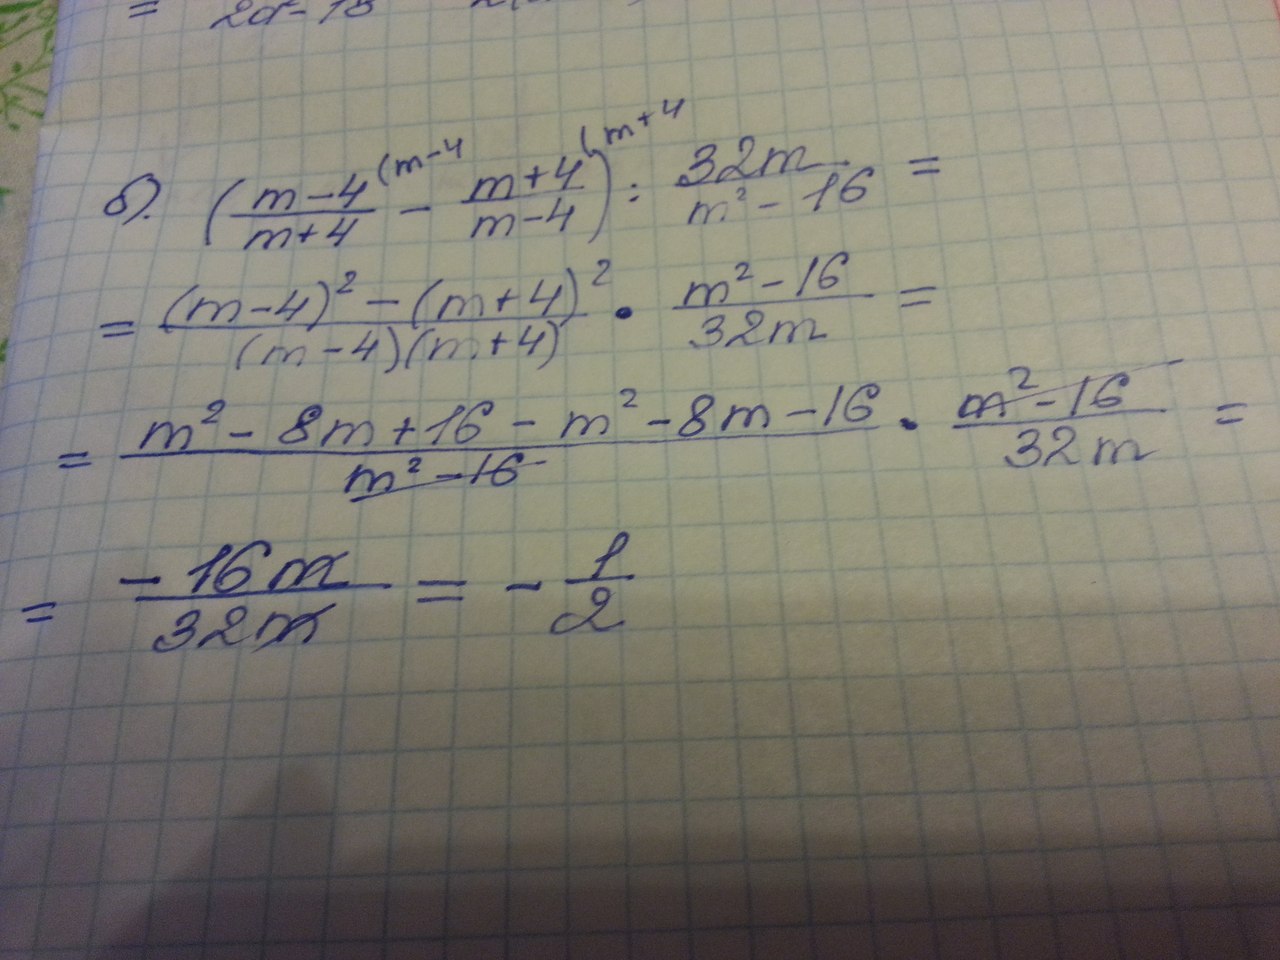 = 2a-18 2(
б). (m-4/m+4 (m-4 - m+4/m-4 (m+4) : 32m/m² - 16 =
= (m-4)² - (m+4)²/(m-4)(m+4) • m² - 16/32m =
= m² - 8m + 16 - m² - 8m - 16/m² - 16 • m² - 16/32m =
= -16m/32m = - 1/2